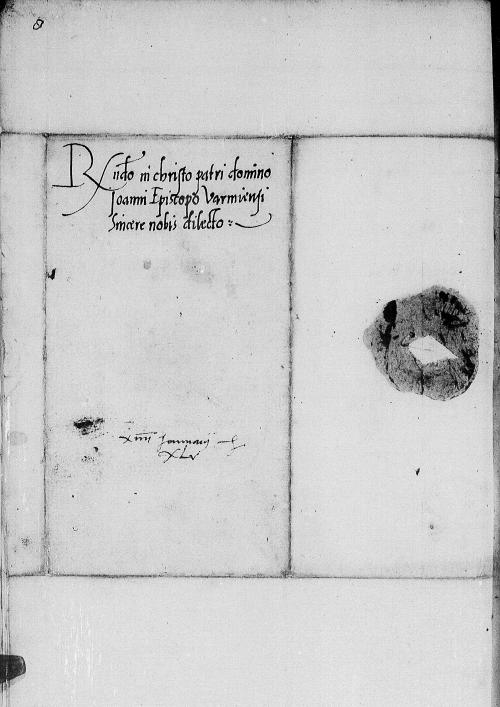 Rndo in christo patri domino
Joanni Episcopo Varmiensi
Sincere nobis dilecto :
xiiii Januarij
XLV